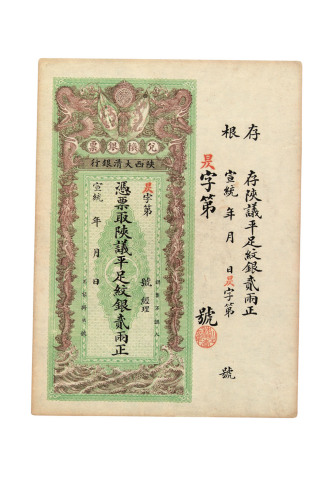 存根
存陝議平足紋銀貳兩正
宣統年月日昃字第號
昃字第號
兌換銀票
陝西大清銀行
昃字第號經理
憑票取陝議平足紋銀貳兩正
宣統年月日